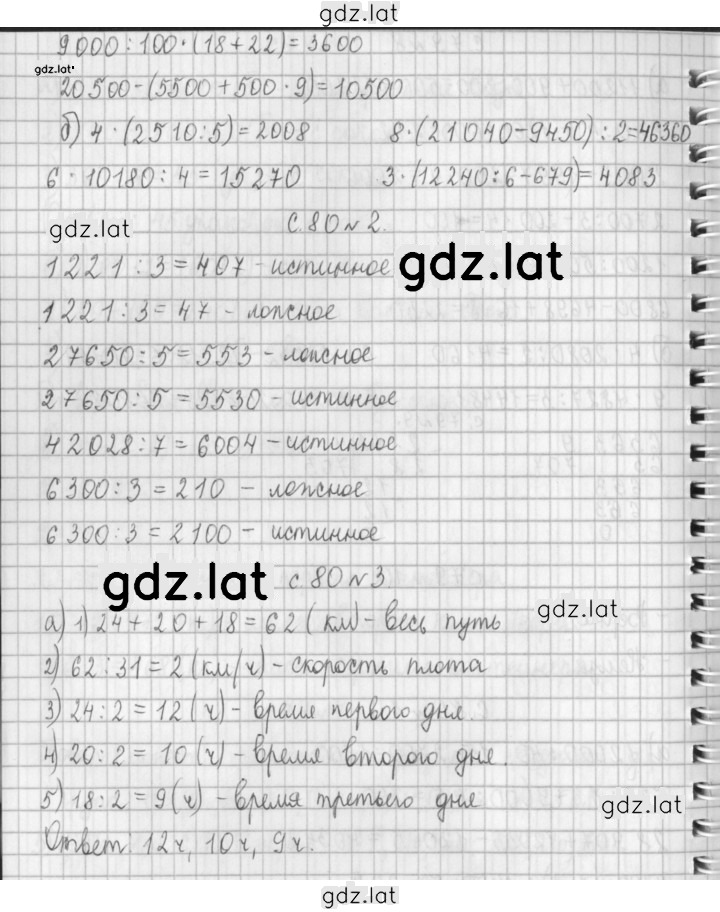 gdz.lat
9000:100·(18+22)=3600
gdz.lat
20500-(5500+500·9)=10500
б) 4·(2510:5)=2008 8·(21040-9450):2=46360
6·10180:4=15270 3·(12240:6-679)=4083
gdz.lat с.80 №2.
1221:3=407 - истинное gdz.lat
1221:3=47 - ложное
27650:5=553 - ложное
27650:5=5530 - истинное
42028:7=6004 - истинное
6300:3=210 - ложное
6300:3=2100 - истинное
gdz.lat с.80 №3
а) 1) 24+20+18=62 (км) - весь путь gdz.lat
2) 62:31=2 (км/ч) - скорость плота
3) 24:2=12 (ч) - время первого дня.
4) 20:2=10 (ч) - время второго дня.
5) 18:2=9 (ч) - время третьего дня gdz.lat
Ответ: 12ч, 10ч, 9ч.
gdz.lat